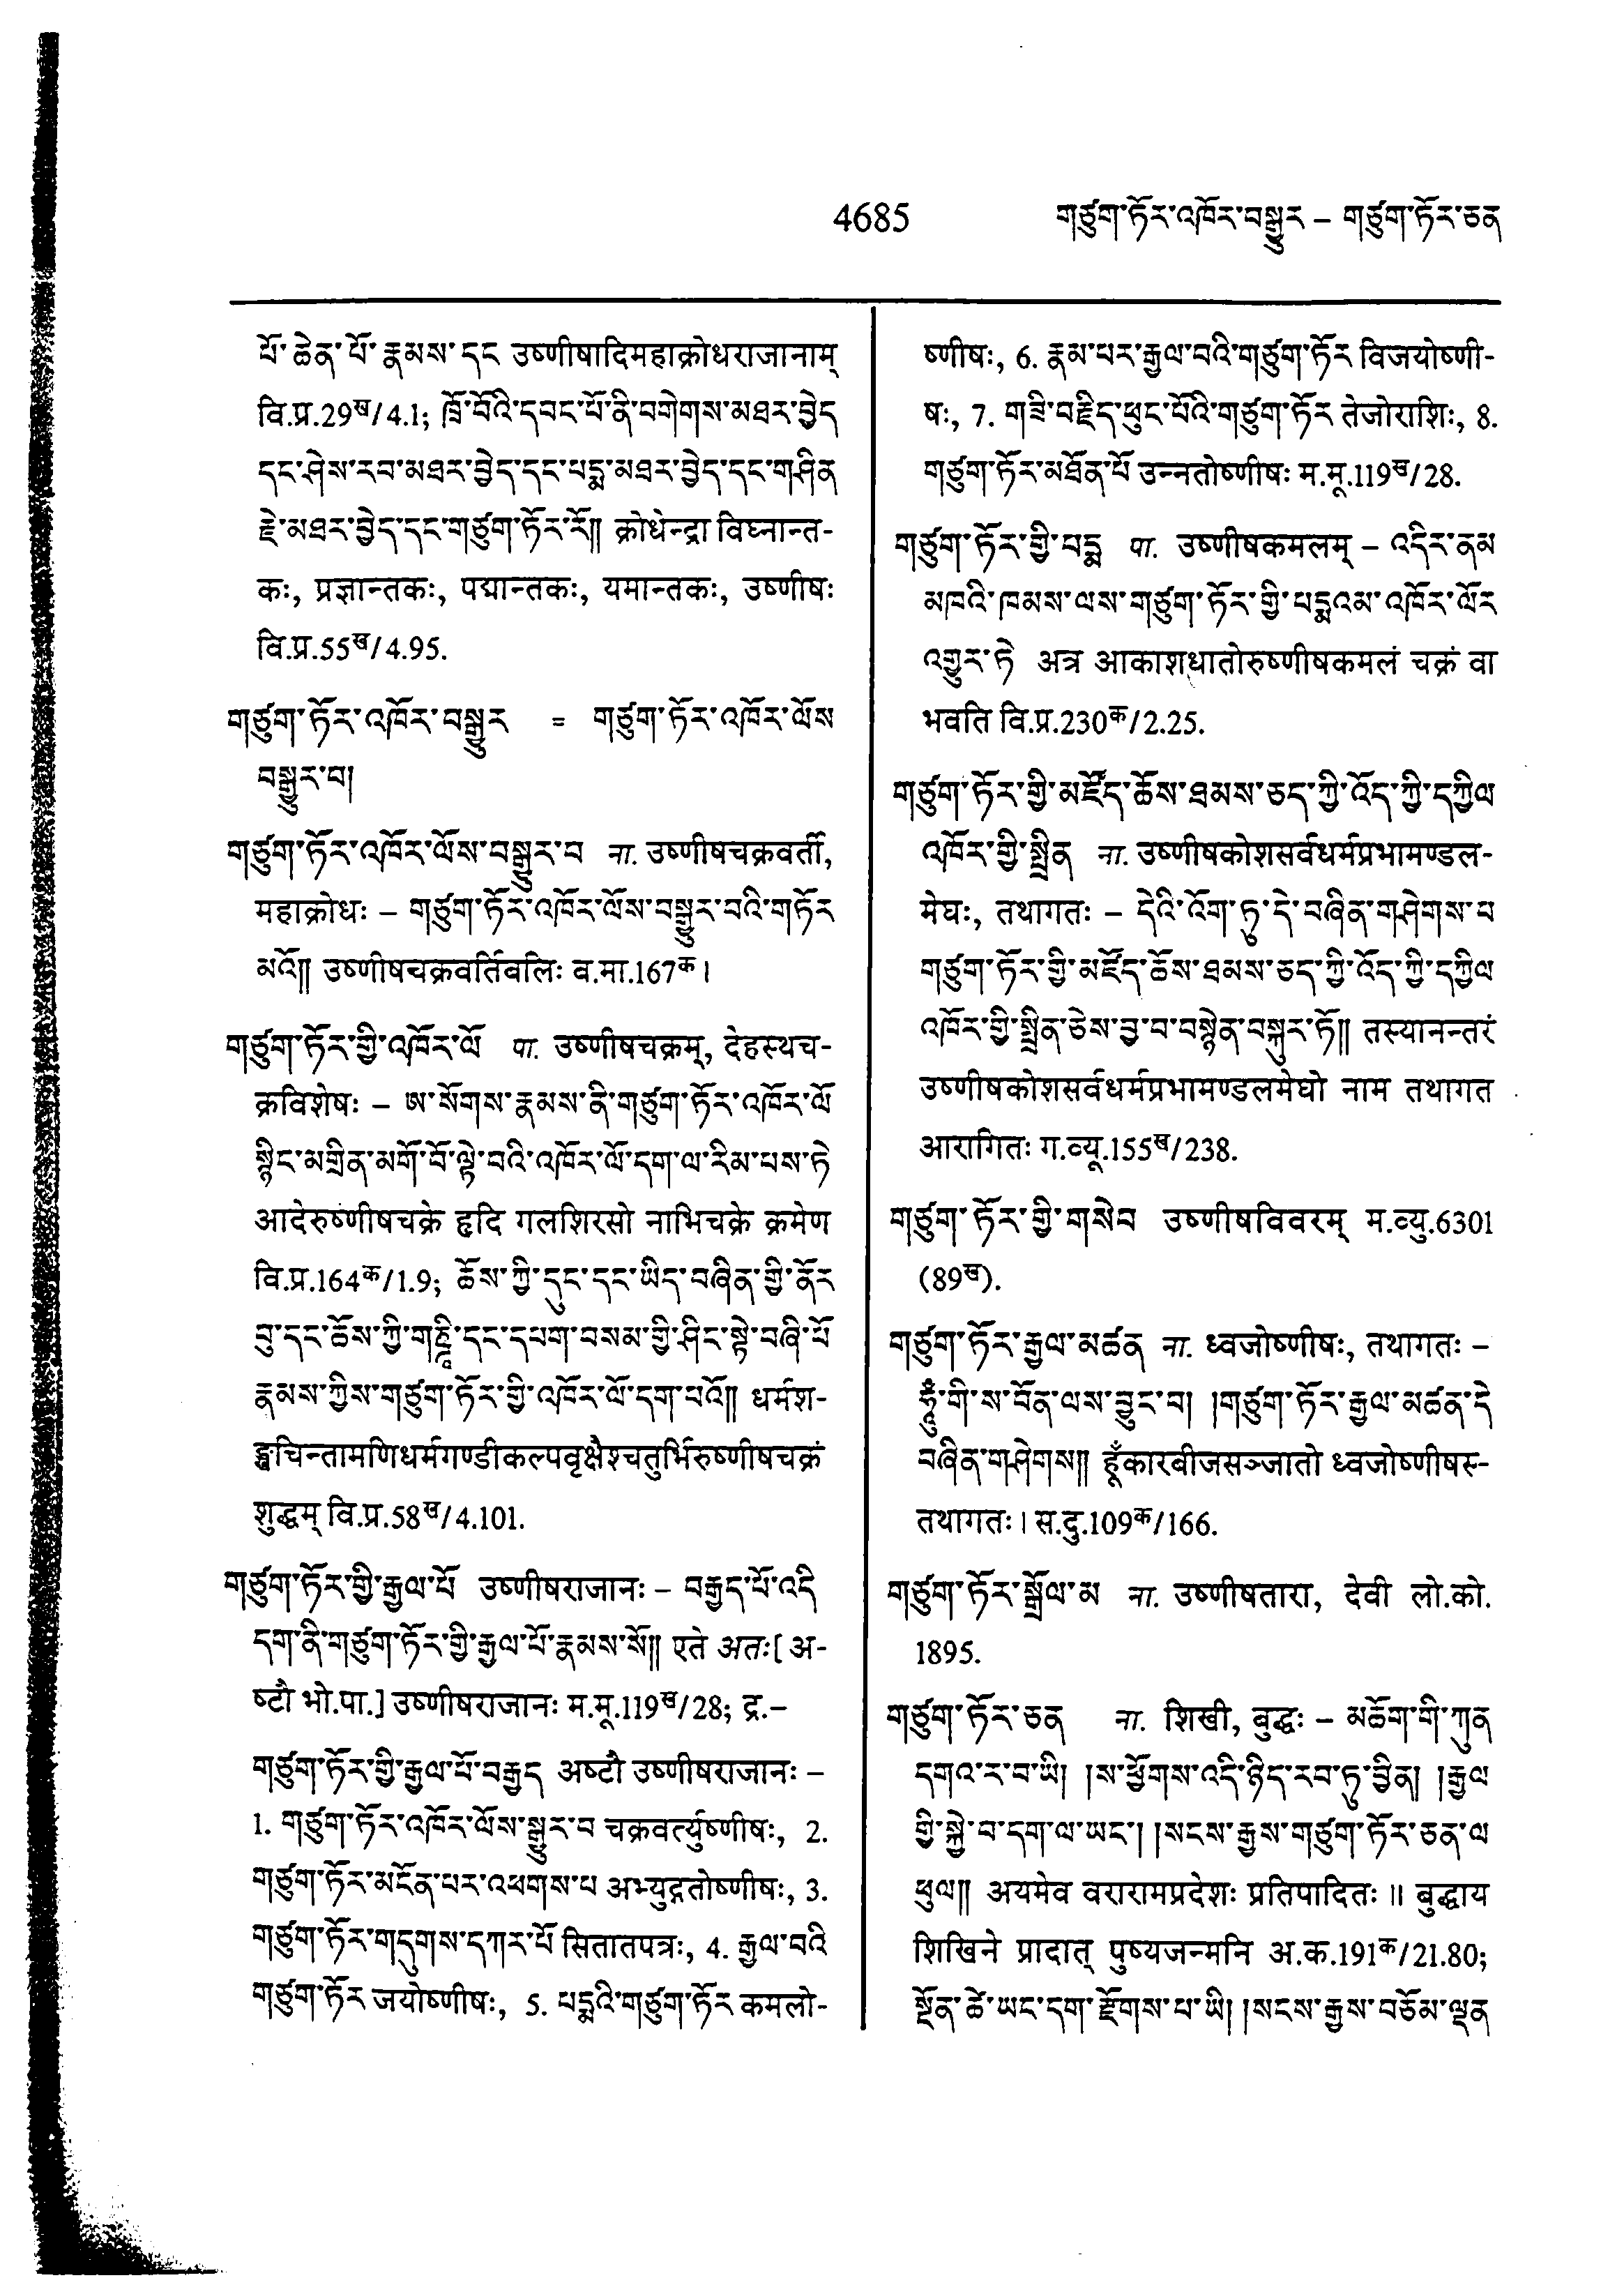 4685
གཙུག་ཏོར་འཁོར་བསྒྱུར – གཙུག་ཏོར་ཅན
པོ་ཆེན་པོ་རྣམས་དང उष्णीषादिमहाक्रोधराजानाम्
वि.प्र.29ख/4.1; ཁྲོ་བོའི་དབང་པོ་ནི་བགེགས་མཐར་བྱེད
དང་ཤེས་རབ་མཐར་བྱེད་དང་པདྨ་མཐར་བྱེད་དང་གཤིན
རྗེ་མཐར་བྱེད་དང་གཙུག་ཏོར་རོ།། क्रोधेन्द्रा विघ्नान्त-
कः, प्रज्ञान्तकः, पद्मान्तकः, यमान्तकः, उष्णीषः
वि.प्र.55ख/4.95.
གཙུག་ཏོར་འཁོར་བསྒྱུར = གཙུག་ཏོར་འཁོར་ལོས
བསྒྱུར་བ།
གཙུག་ཏོར་འཁོར་ལོས་བསྒྱུར་བ ना. उष्णीषचक्रवर्ती,
महाक्रोधः – གཙུག་ཏོར་འཁོར་ལོས་བསྒྱུར་བའི་གཏོར
མའོ།། उष्णीषचक्रवर्तिवलिः व.मा.167क।
གཙུག་ཏོར་གྱི་འཁོར་ལོ पा. उष्णीषचक्रम्, देहस्थच-
क्रविशेषः – ཨ་སོགས་རྣམས་ནི་གཙུག་ཏོར་འཁོར་ལོ
སྙིང་མགྲིན་མགོ་བོ་ལྟེ་བའི་འཁོར་ལོ་དག་ལ་རིམ་པས་ཏེ
आदेरुष्णीषचक्रे हृदि गलशिरसो नाभिचक्रे क्रमेण
वि.प्र.164क/1.9; ཆོས་ཀྱི་དུང་དང་ཡིད་བཞིན་གྱི་ནོར
བུ་དང་ཆོས་ཀྱི་གཎྜཱི་དང་དཔག་བསམ་གྱི་ཤིང་སྟེ་བཞི་པོ
རྣམས་ཀྱིས་གཙུག་ཏོར་གྱི་འཁོར་ལོ་དག་པའོ།། धर्मश-
ङ्खचिन्तामणिधर्मगण्डीकल्पवृक्षैश्चतुर्भिरुष्णीषचक्रं
शुद्धम् वि.प्र.58ख/4.101.
གཙུག་ཏོར་གྱི་རྒྱལ་པོ उष्णीषराजानः – བརྒྱད་པོ་འདི
དག་ནི་གཙུག་ཏོར་གྱི་རྒྱལ་པོ་རྣམས་སོ།། एते अतः[ अ-
ष्टौ भो.पा.] उष्णीषराजानः म.मू.119ख/28; द्र.–
གཙུག་ཏོར་གྱི་རྒྱལ་པོ་བརྒྱད अष्टौ उष्णीषराजानः –
1. གཙུག་ཏོར་འཁོར་ལོས་སྒྱུར་བ चक्रवर्त्युष्णीषः, 2.
གཙུག་ཏོར་མངོན་པར་འཕགས་པ अभ्युद्गतोष्णीषः, 3.
གཙུག་ཏོར་གདུགས་དཀར་པོ सितातपत्रः, 4. རྒྱལ་བའི
གཙུག་ཏོར जयोष्णीषः, 5. པདྨའི་གཙུག་ཏོར कमलो-
ष्णीषः, 6. རྣམ་པར་རྒྱལ་བའི་གཙུག་ཏོར विजयोष्णी-
षः, 7. གཟི་བརྗིད་ཕུང་པོའི་གཙུག་ཏོར तेजोराशिः, 8.
གཙུག་ཏོར་མཐོན་པོ उन्नतोष्णीषः म.मू.119ख/28.
གཙུག་ཏོར་གྱི་པདྨ पा. उष्णीषकमलम् – འདིར་ནམ
མཁའི་ཁམས་ལས་གཙུག་ཏོར་གྱི་པདྨའམ་འཁོར་ལོར
འགྱུར་ཏེ अत्र आकाशधातोरुष्णीषकमलं चक्रं वा
भवति वि.प्र.230क/2.25.
གཙུག་ཏོར་གྱི་མཛོད་ཆོས་ཐམས་ཅད་ཀྱི་འོད་ཀྱི་དཀྱིལ
འཁོར་གྱི་སྤྲིན ना. उष्णीषकोशसर्वधर्मप्रभामण्डल-
मेघः, तथागतः – དེའི་འོག་ཏུ་དེ་བཞིན་གཤེགས་པ
གཙུག་ཏོར་གྱི་མཛོད་ཆོས་ཐམས་ཅད་ཀྱི་འོད་ཀྱི་དཀྱིལ
འཁོར་གྱི་སྤྲིན་ཅེས་བྱ་བ་བསྙེན་བསྐུར་ཏོ།། तस्यानन्तरं
उष्णीषकोशसर्वधर्मप्रभामण्डलमेघो नाम तथागत
आरागितः ग.व्यू.155ख/238.
གཙུག་ཏོར་གྱི་གསེབ उष्णीषविवरम् म.व्यु.6301
(89ख).
གཙུག་ཏོར་རྒྱལ་མཚན ना. ध्वजोष्णीषः, तथागतः –
ཧཱུྃ་གི་ས་བོན་ལས་བྱུང་བ། །གཙུག་ཏོར་རྒྱལ་མཚན་དེ
བཞིན་གཤེགས།། हूँकारबीजसञ्जातो ध्वजोष्णीषस्-
तथागतः। स.दु.109क/166.
གཙུག་ཏོར་སྒྲོལ་མ ना. उष्णीषतारा, देवी लो.को.
1895.
གཙུག་ཏོར་ཅན ना. शिखी, बुद्धः – མཆོག་གི་ཀུན
དགའ་ར་བ་ཡི། །ས་ཕྱོགས་འདི་ཉིད་རབ་ཏུ་བྱིན། །རྒྱལ
གྱི་སྐྱེ་བ་དག་ལ་ཡང་། །སངས་རྒྱས་གཙུག་ཏོར་ཅན་ལ
ཕུལ།། अयमेव वरारामप्रदेशः प्रतिपादितः ॥ बुद्धाय
शिखिने प्रादात् पुष्यजन्मनि अ.क.191क/21.80;
སྔོན་ཚེ་ཡང་དག་རྫོགས་པ་ཡི། །སངས་རྒྱས་བཅོམ་ལྡན